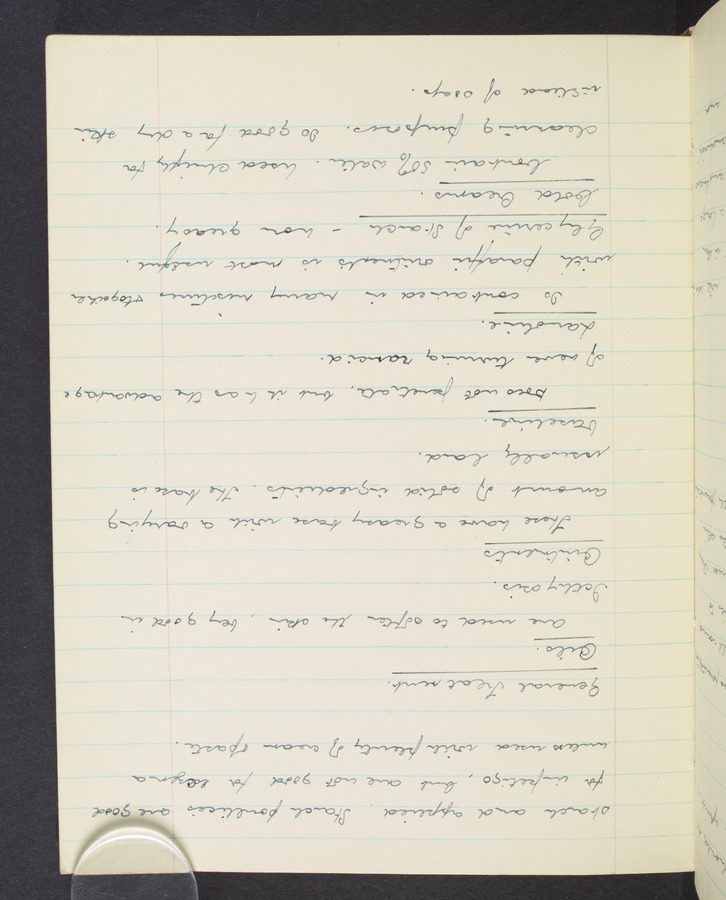 starch and applied. Starch poultices are good
for impetigo, but are not good for eczema
unless used with plenty of cream & paste.
General Treatment.
Oils.
are used to soften the skin. Very good in
Icthyosis.
Ointments
These have a greasy base with a varying
amount of solid ingredients. The base is
usually lard.
Vaseline.
Does not penetrate, but it has the advantage
of never turning rancid.
Lanoline.
Is contained in many mixtures & together
with paraffin ointments is most useful.
Glycerine of Starch - non greasy.
Cold Creams.
Contain 50% water. Used chiefly for
cleansing purposes. So good for a dry skin
instead of soap.